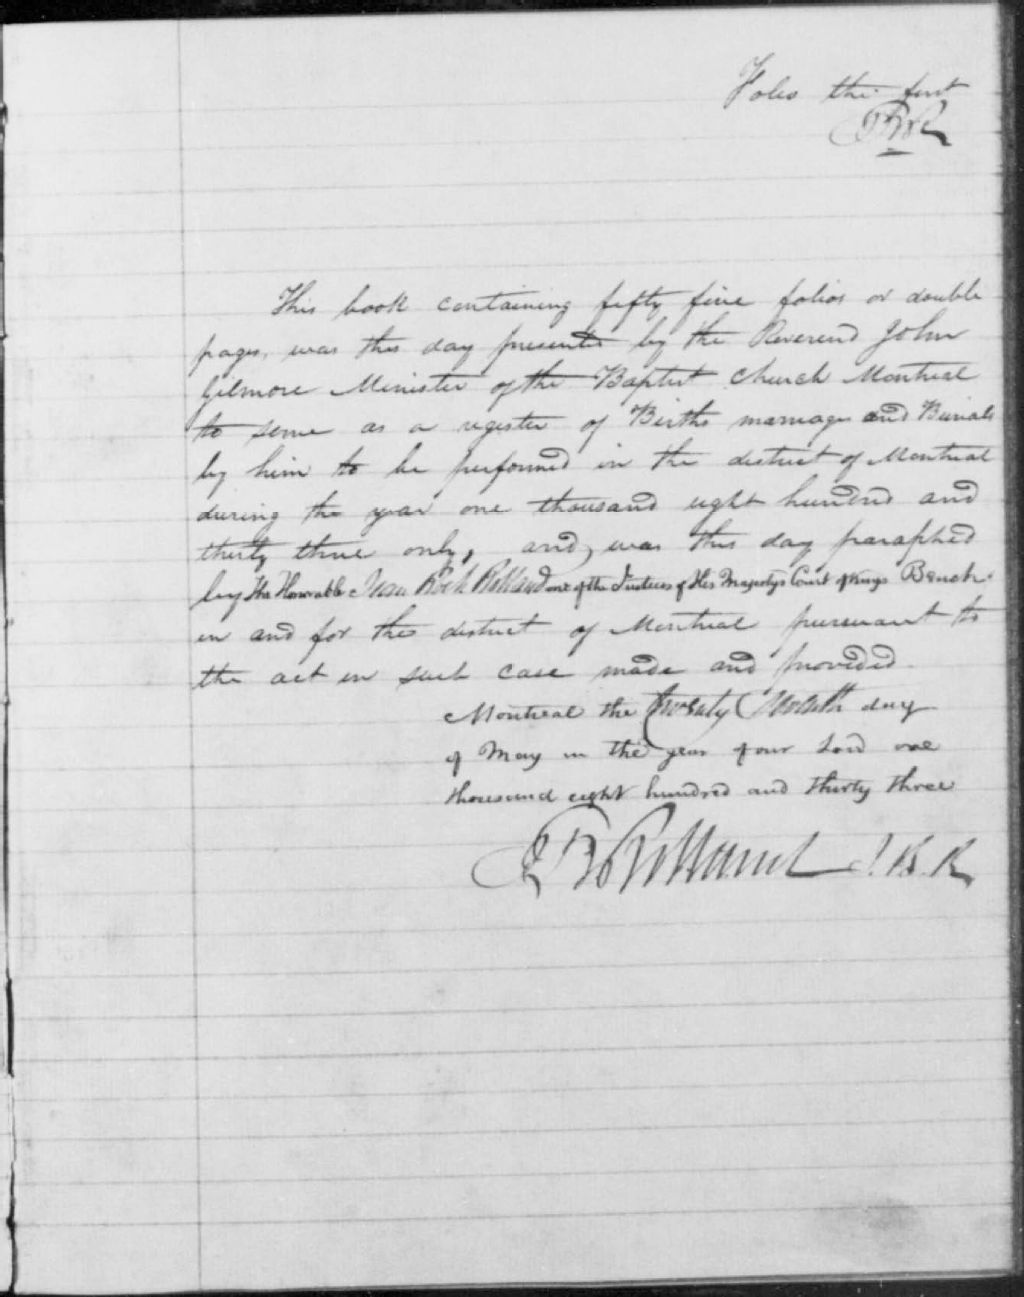 Folio the first
This book containing fifty five folios or double
pages, was this day presented by the Reverend John
Gilmore Minister of the Baptist Church Montreal
to serve as a register of Births marriages and Burials
by him to be performed in the district of Montreal
during the year one thousand eight hundred and
thirty three only, and, was this day paraphed
by The Honorable Jean Roch Rolland one of the Justices of His Majestys Court of Kings Bench
in and for the district of Montreal pursuant to
the act in such case made and provided.
Montreal the twenty seventh day
of May in the year of our Lord one
thousand eight hundred and thirty three
Rolland J.B.R